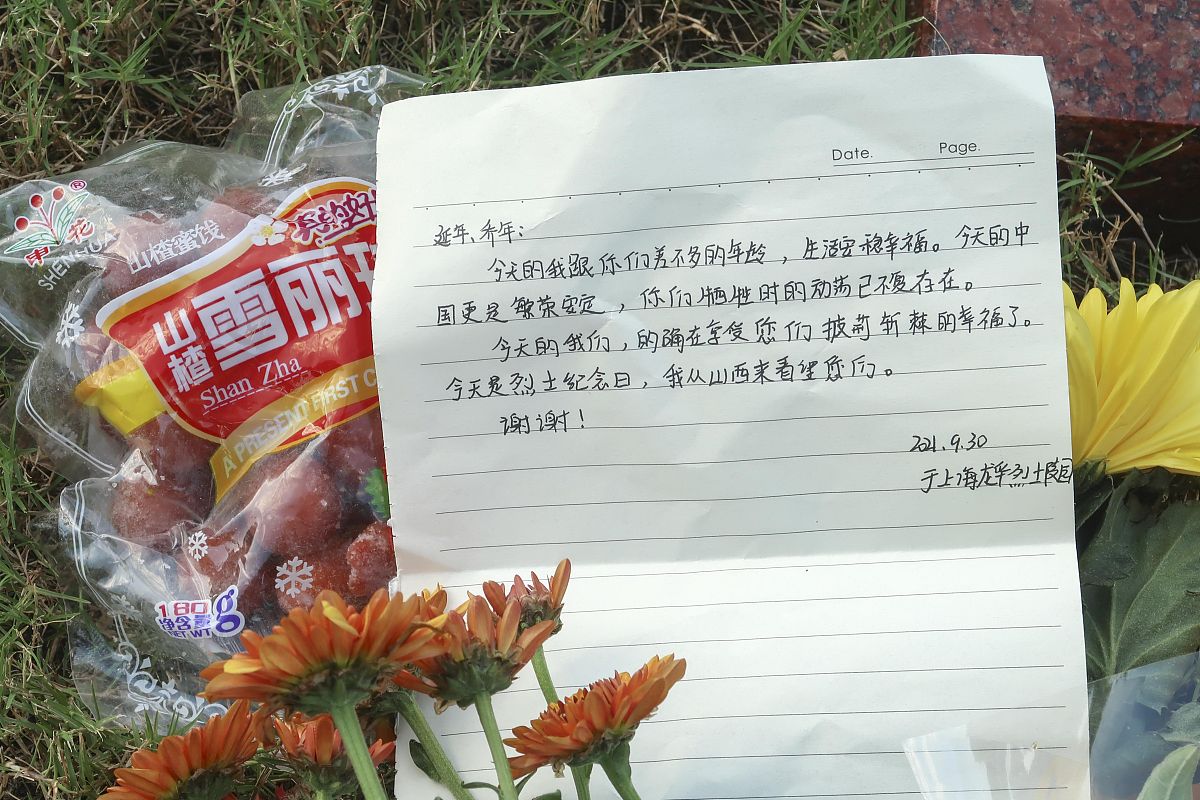 申花®
SHENHUA
山楂蜜饯
真的好
山楂
雪丽
Shan Zha
A PRESENT FIRST C
180g
净含量
NET WT
Date. Page.
延年、乔年：
今天的我跟你们差不多的年龄，生活安稳幸福。今天的中
国更是繁荣安定，你们牺牲时的动荡已不复存在。
今天的我们，的确在享受您们披荆斩棘的幸福了。
今天是烈士纪念日，我从山西来看望您们。
谢谢！
2021.9.30
于上海龙华烈士陵园